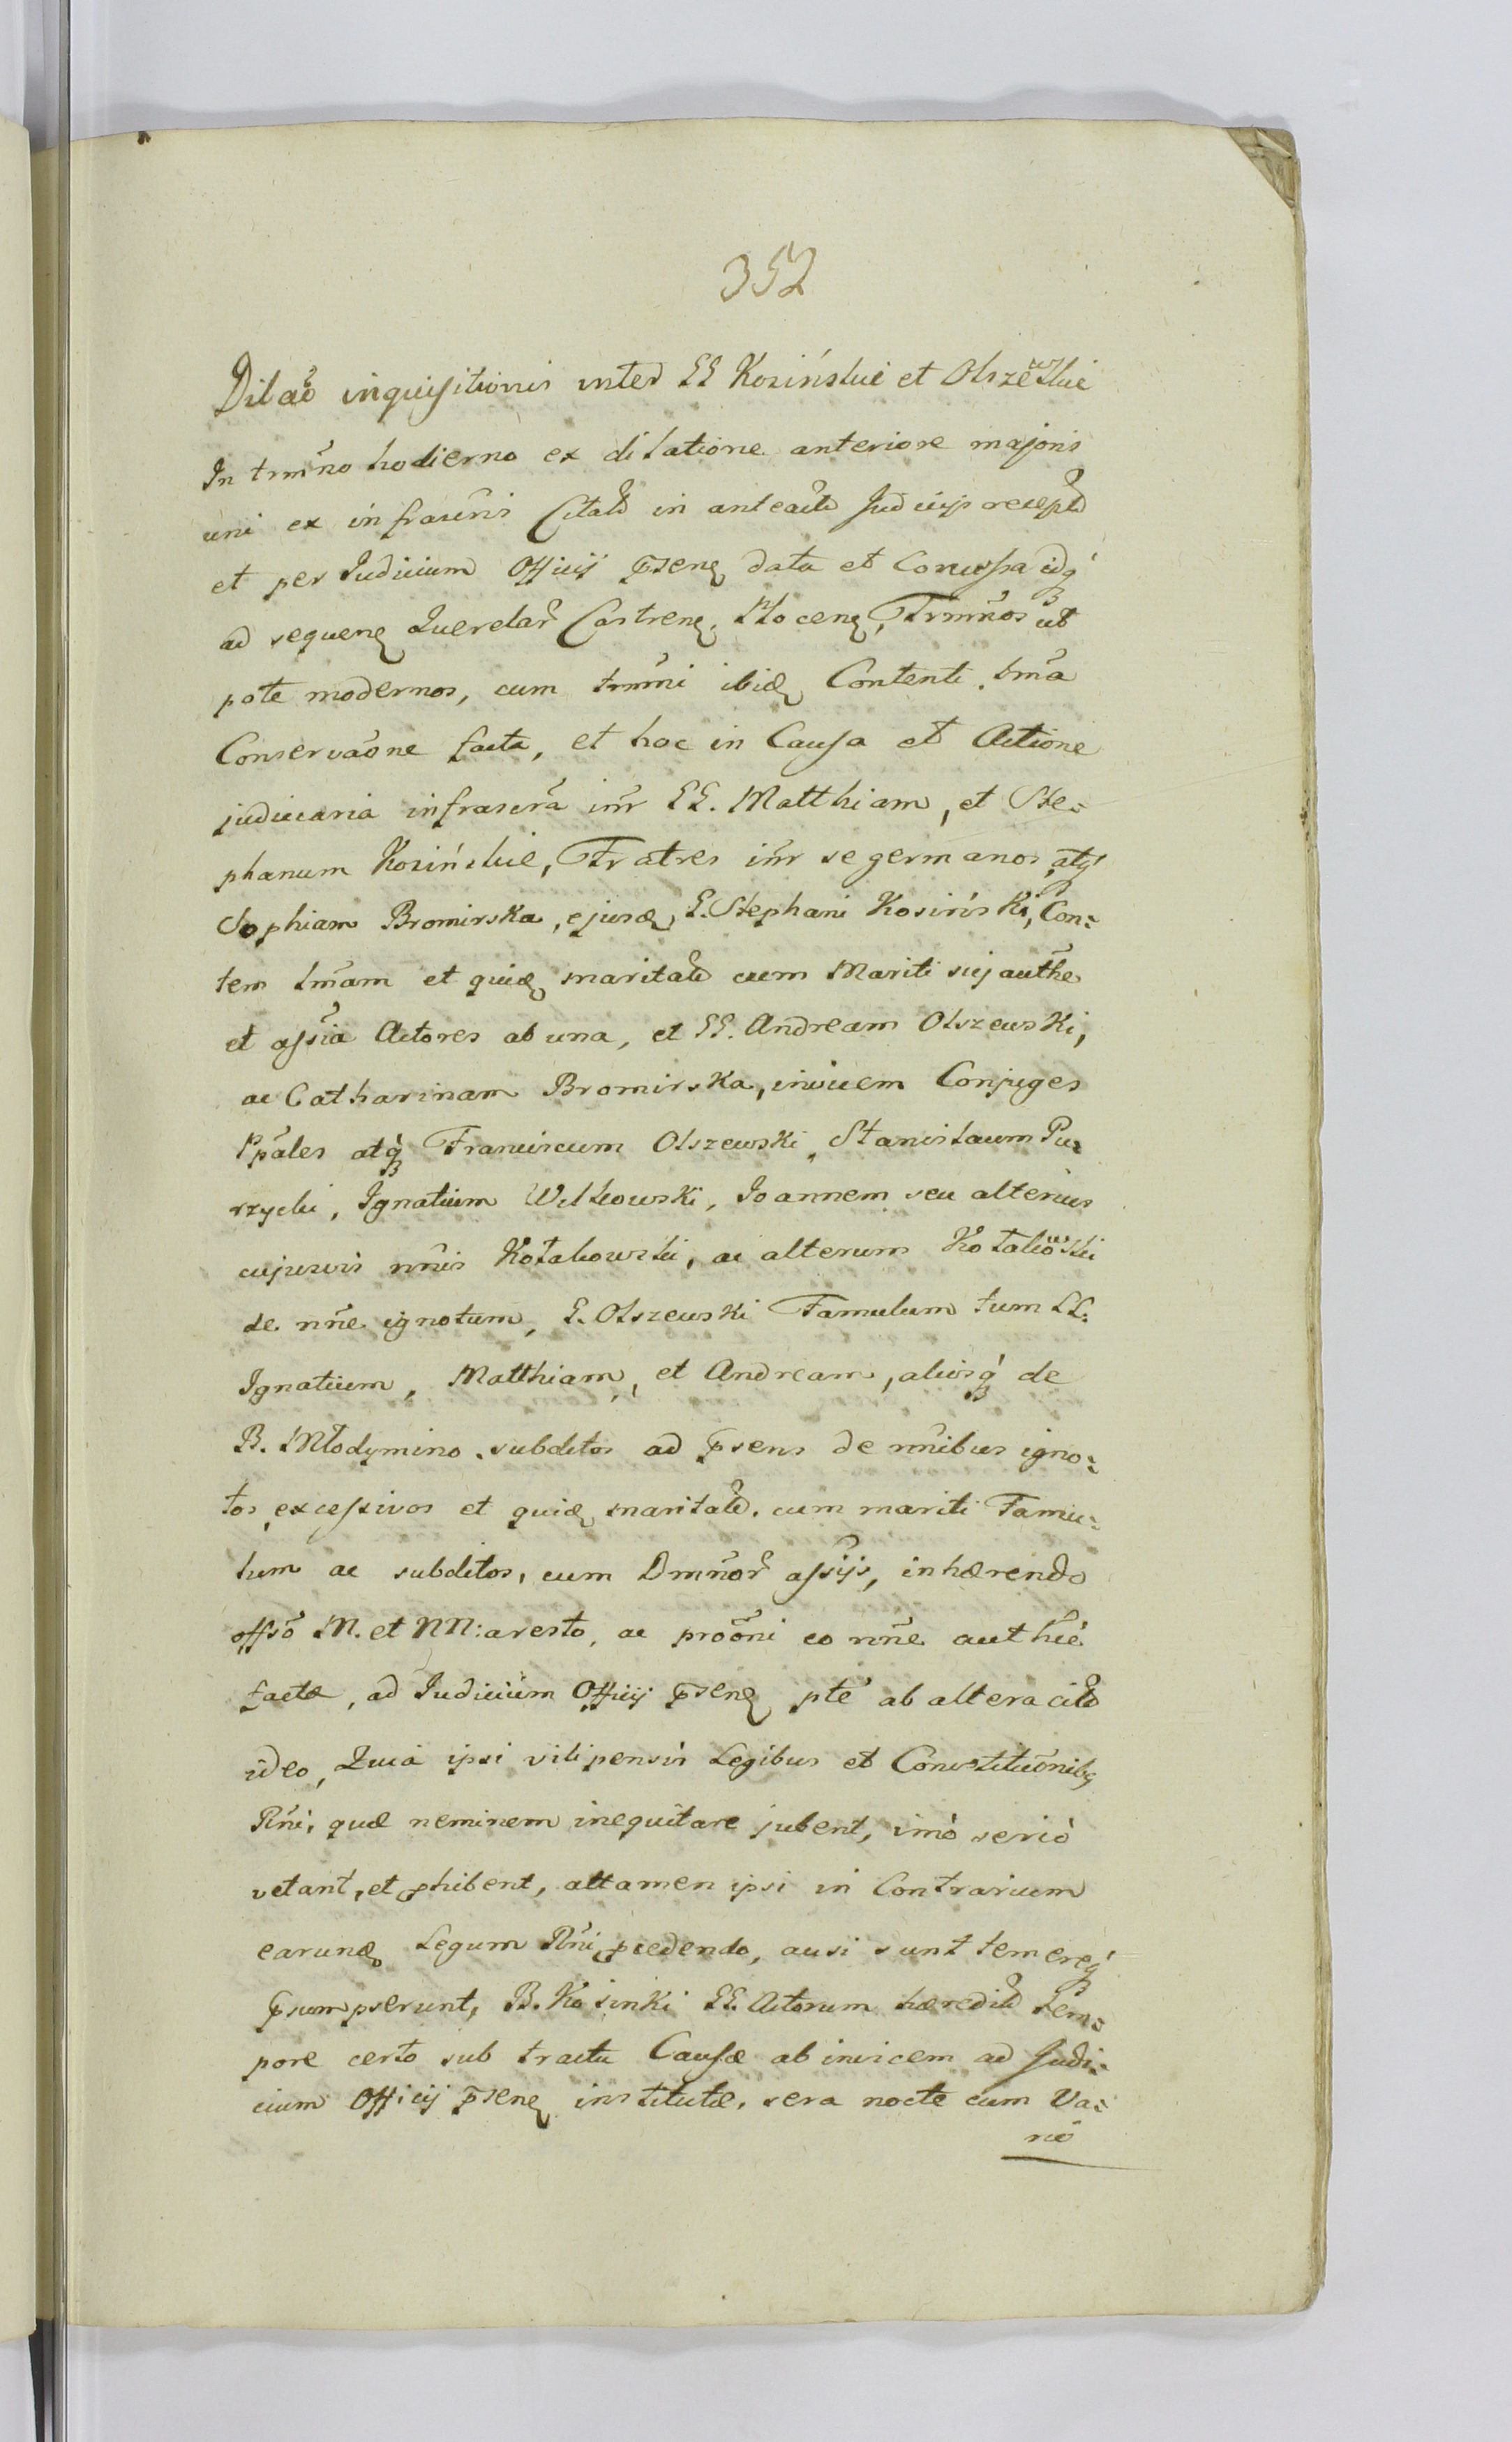 352
Dilaõ inquisitionis inter EE Kosińskie et Olszewskie
In trm̃no hodierno ex dilatione anteriore majoris
uni ex infrascris Citatd in anteactd Judicijs receptd
et per Judicium Officij p̃senq data et Concessa idq́
ad sequenq Querelar̃ Castrenq, Plocenq, Trm̃nos ut
pote modernos, cum trm̃ni ibidq Contenti, tm̃a
Conservaõne facta, et hac in Causa et Actione
judiciaria infrascr̃a inr̃ EE. Matthiam, et Ste=
phanum Kosińskie, Fratres inr̃ se germanos, atq́
Sophiam Bromirska, ejusdq, E. Stephani Kosiński, Con=
tem tm̃am et quidq maritatd cum Mariti sui auth̃e
et assĩa Actores ab una, et EE. Andream Olszewski,
ac Catharinam Bromirska, invicem Conjuges
Pp̃ales atq́ Franciscum Olszewski, Stanislaum Pu=
rzycki, Ignatium Wilkowski, Joannem seu alterius
cujusvis nñis Kotakowski, ac alterum Kotakowski
de nñe ignotum, E. Olszewski Famulum tum LL.
Ignatium, Matthiam, et Andream, aliosq́ de
B. Młodymino subditos ad p̃sens de nñibus igno=
tos, excessivos et quidq maritatd. cum mariti Famu=
lum ac subditos, cum Dm̃nor̃ assijs, inhærendo
offsõ M. et NN: aresto, ac proõni eo nñe auth̃ie
factæ, ad Judicium Officij p̃senq pte ab altera citd
ideo, Quia ipsi vilipensis Legibus et Constituõnibq
Rñi, quæ neminem inequitare jubent, imò seriò
vetant, et phibent, attamen ipsi in Contrarium
earundq Legum Rñi pcedendo, ausi sunt temereq́
p̃sumpserunt, B. Kosinki EE. Actorum hæreditd tem=
pore certo sub tractu Causæ ab invicem ad Judi=
cium Officij p̃senq institutæ, sera nocte cum Va=
rio